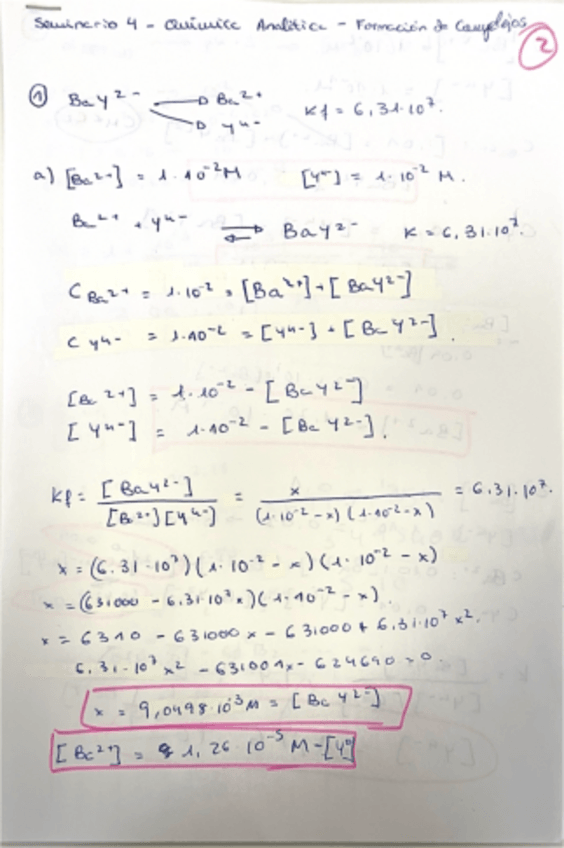 Seminario 4 - Química Analítica - Formación de Complejos
2
① BaY²⁻ → Ba²⁺ Kf = 6,31·10⁷.
→ Y⁴⁻
a) [Ba²⁺] = 1·10⁻² M [Y⁴⁻] = 1·10⁻² M.
Ba²⁺ + Y⁴⁻ ⇄ BaY²⁻ K = 6,31·10⁷.
C Ba²⁺ = 1·10⁻² = [Ba²⁺] + [BaY²⁻]
C Y⁴⁻ = 1·10⁻² = [Y⁴⁻] + [BaY²⁻].
[Ba²⁺] = 1·10⁻² - [BaY²⁻]
[Y⁴⁻] = 1·10⁻² - [BaY²⁻].
Kf = [BaY²⁻] / [Ba²⁺][Y⁴⁻] = x / (1·10⁻² - x)(1·10⁻² - x) = 6,31·10⁷.
x = (6,31·10⁷)(1·10⁻² - x)(1·10⁻² - x)
x = (631000 - 6,31·10⁷x)(1·10⁻² - x).
x = 6310 - 631000x - 631000 + 6,31·10⁷x².
6,31·10⁷x² - 631001x - 624690 = 0
x = 9,0498·10⁻³ M = [BaY²⁻]
[Ba²⁺] = 1,26·10⁻⁵ M = [Y⁴⁻]